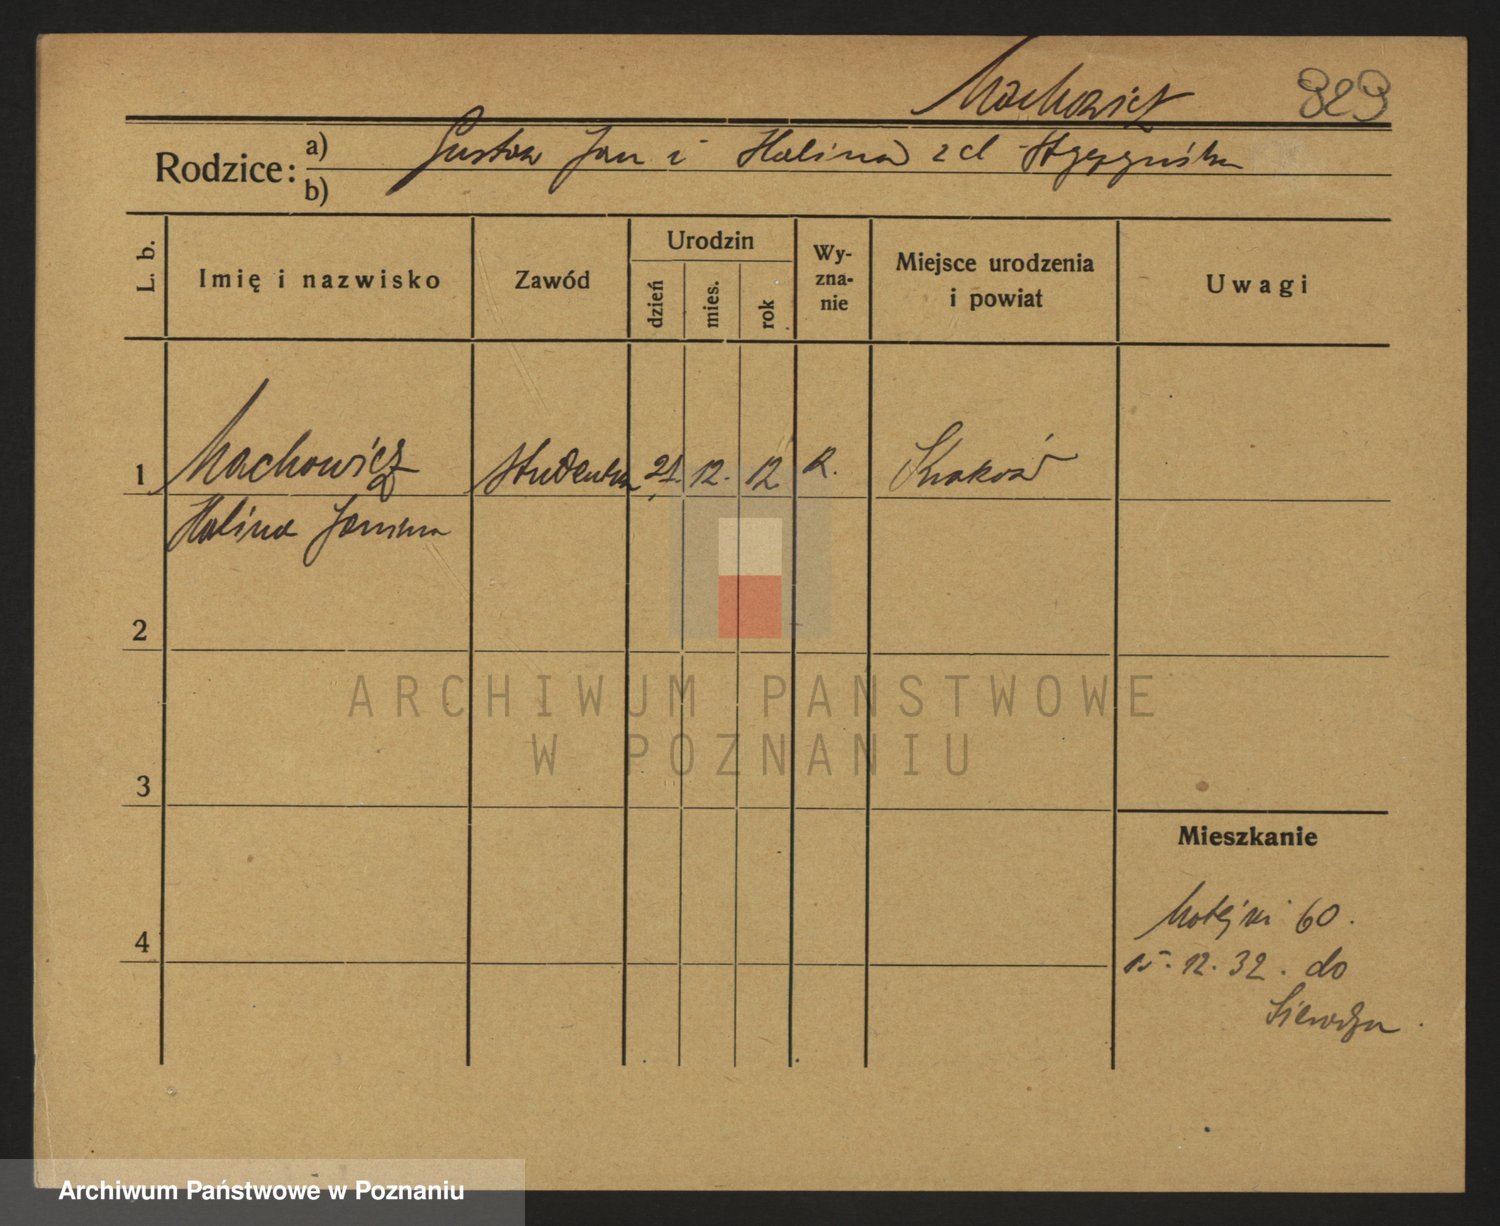 Machowicz 929
Rodzice: a) Gustaw Jan i Halina z d.
b)
L. b.
Imię i nazwisko
Zawód
Urodzin
dzień
mies.
rok
Wy-
zna-
nie
Miejsce urodzenia
i powiat
Uwagi
1 Machowicz Studentka 21. 12. 12 R. Kraków
Halina Janina
2
3
4
Mieszkanie
Matejki 60.
12. 32. do
Sieradza.
ARCHIWUM PAŃSTWOWE
W POZNANIU
Archiwum Państwowe w Poznaniu